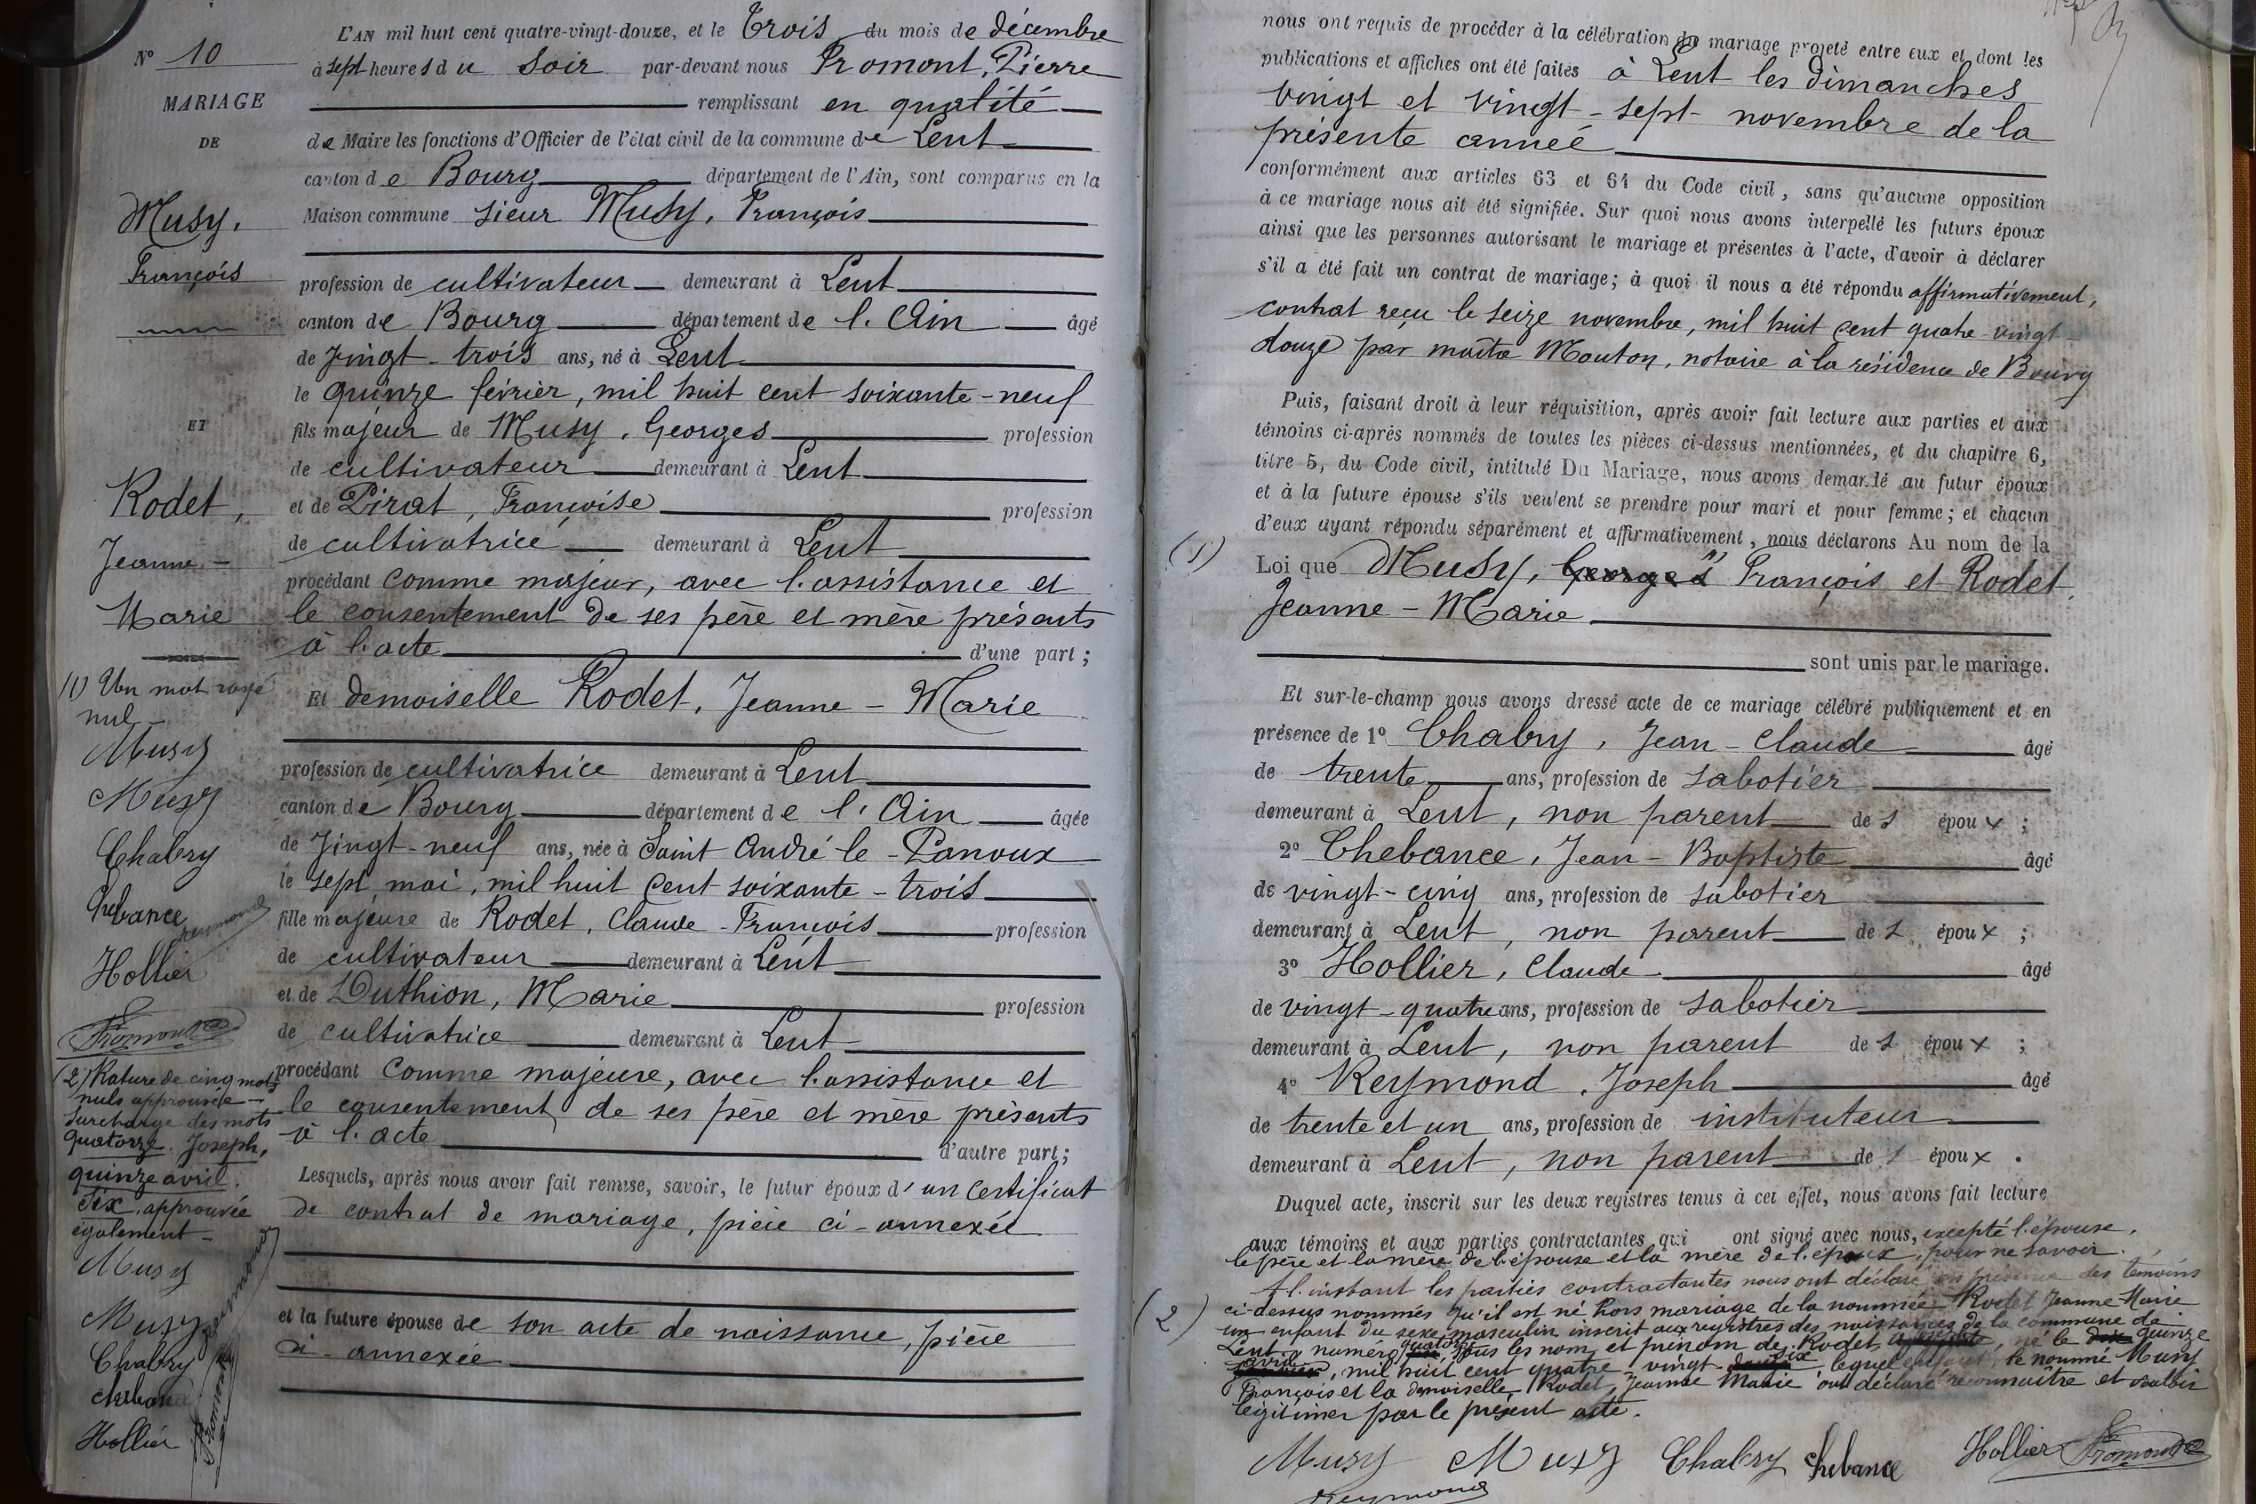 N° 10
MARIAGE
DE
Musy,
François
ET
Rodet,
Jeanne-
Marie
(1) Un mot rayé
nul
Musy
Musy
Chabry
Chebance
Reymond
Hollier
Fromont
(2) Rature de cinq mots
nuls approuvée -
surcharge des mots
quatorze. Joseph,
quinze avril.
six, approuvée
également -
Musy
Musy
Reymond
Chabry
Chebance
Fromont
Hollier
L'AN mil huit cent quatre-vingt-douze, et le Trois du mois de décembre
à sept heures du soir par-devant nous Fromont, Pierre
remplissant en qualité
de Maire les fonctions d'Officier de l'état civil de la commune de Lent
canton de Bourg département de l'Ain, sont comparus en la
Maison commune sieur Musy, François
profession de cultivateur demeurant à Lent
canton de Bourg département de l'Ain âgé
de vingt-trois ans, né à Lent
le quinze février, mil huit cent soixante-neuf
fils majeur de Musy, Georges profession
de cultivateur demeurant à Lent
et de Pirat, Françoise profession
de cultivatrice demeurant à Lent
procédant comme majeur, avec l'assistance et
le consentement de ses père et mère présents
à l'acte d'une part;
Et demoiselle Rodet, Jeanne-Marie
profession de cultivatrice demeurant à Lent
canton de Bourg département de l'Ain âgée
de vingt-neuf ans, née à Saint André le-Panoux
le sept mai, mil huit cent soixante-trois
fille majeure de Rodet, Claude-François profession
de cultivateur demeurant à Lent
et de Duthion, Marie profession
de cultivatrice demeurant à Lent
procédant comme majeure, avec l'assistance et
le consentement de ses père et mère présents
à l'acte d'autre part;
Lesquels, après nous avoir fait remise, savoir, le futur époux d'un certificat
de contrat de mariage, pièce ci-annexée
et la future épouse de son acte de naissance, pièce
ci-annexée
nous ont requis de procéder à la célébration du mariage projeté entre eux et dont les
publications et affiches ont été faites à Lent les dimanches
vingt et vingt-sept novembre de la
présente année
conformément aux articles 63 et 64 du Code civil, sans qu'aucune opposition
à ce mariage nous ait été signifiée. Sur quoi nous avons interpellé les futurs époux
ainsi que les personnes autorisant le mariage et présentes à l'acte, d'avoir à déclarer
s'il a été fait un contrat de mariage; à quoi il nous a été répondu affirmativement,
contrat reçu le seize novembre, mil huit cent quatre-vingt
douze par maître Mouton, notaire à la résidence de Bourg
Puis, faisant droit à leur réquisition, après avoir fait lecture aux parties et aux
témoins ci-après nommés de toutes les pièces ci-dessus mentionnées, et du chapitre 6,
titre 5, du Code civil, intitulé Du Mariage, nous avons demandé au futur époux
et à la future épouse s'ils veulent se prendre pour mari et pour femme; et chacun
d'eux ayant répondu séparément et affirmativement, nous déclarons Au nom de la
(1) Loi que Musy, Georges François et Rodet,
Jeanne-Marie
sont unis par le mariage.
Et sur-le-champ nous avons dressé acte de ce mariage célébré publiquement et en
présence de 1° Chabry, Jean-Claude âgé
de trente ans, profession de sabotier
demeurant à Lent, non parent des époux;
2° Chebance, Jean-Baptiste âgé
de vingt-cinq ans, profession de sabotier
demeurant à Lent, non parent des époux;
3° Hollier, Claude âgé
de vingt-quatre ans, profession de sabotier
demeurant à Lent, non parent des époux;
4° Reymond, Joseph âgé
de trente et un ans, profession de instituteur
demeurant à Lent, non parent des époux.
Duquel acte, inscrit sur les deux registres tenus à cet effet, nous avons fait lecture
aux témoins et aux parties contractantes qui ont signé avec nous, excepté l'épouse,
le père et la mère de l'épouse et la mère de l'époux, pour ne savoir.
A l'instant les parties contractantes nous ont déclaré en présence des témoins
(2) ci-dessus nommés qu'il est né hors mariage de la nommée Rodet Jeanne Marie
un enfant du sexe masculin inscrit aux registres des naissances de la commune de
Lent, numéro quatorze sous les nom et prénom de Rodet, né le quinze
avril, mil huit cent quatre-vingt-six lequel enfant, le nommé Musy
François et la demoiselle Rodet, Jeanne Marie ont déclaré reconnaître et vouloir
légitimer par le présent acte.
Musy Musy Chabry Chebance Hollier Fromont
Reymond